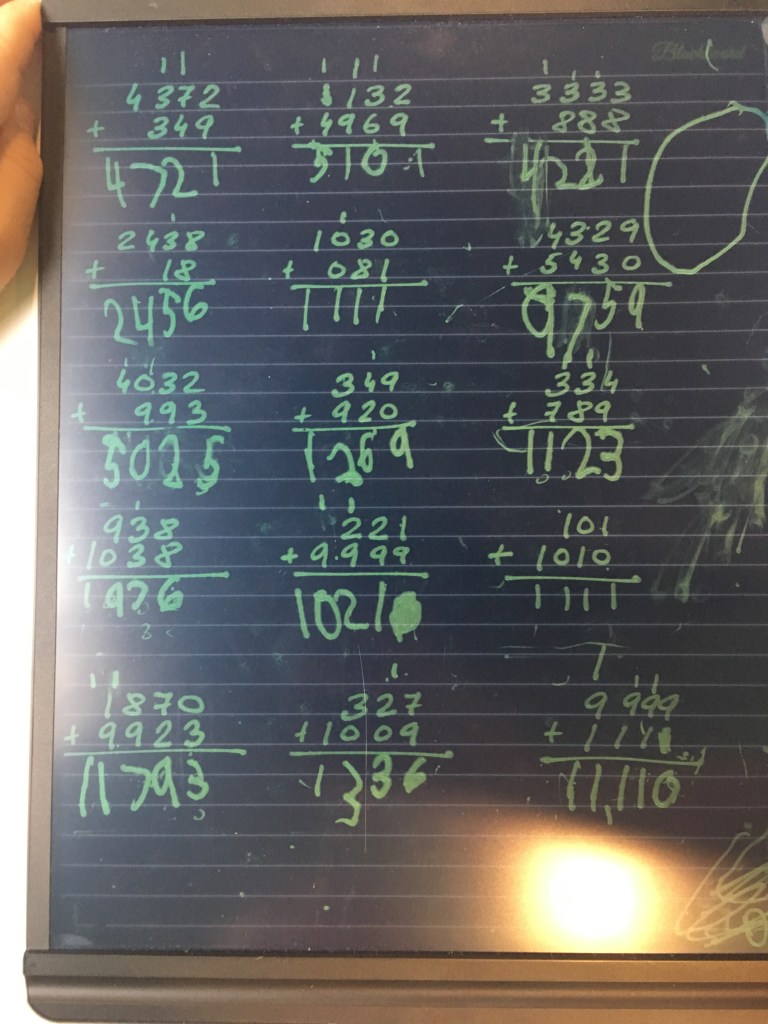 Blackboard
1 1 1 1 1 1 1 1
4372 1132 3333
+ 349 +4969 + 888
4721 5101 4221
1 1
2438 1030 4329
+ 18 + 081 + 5430
2456 1111 9759
1 1 1 1 1
4032 349 334
+ 993 + 920 + 789
5025 1269 1123
1 1 1
938 221 101
+1038 +9.999 + 1010
1976 1021 1111
1 1 1 1 1 1
1870 327 9 999
+9923 +1009 + 1 111
11793 1336 11,110